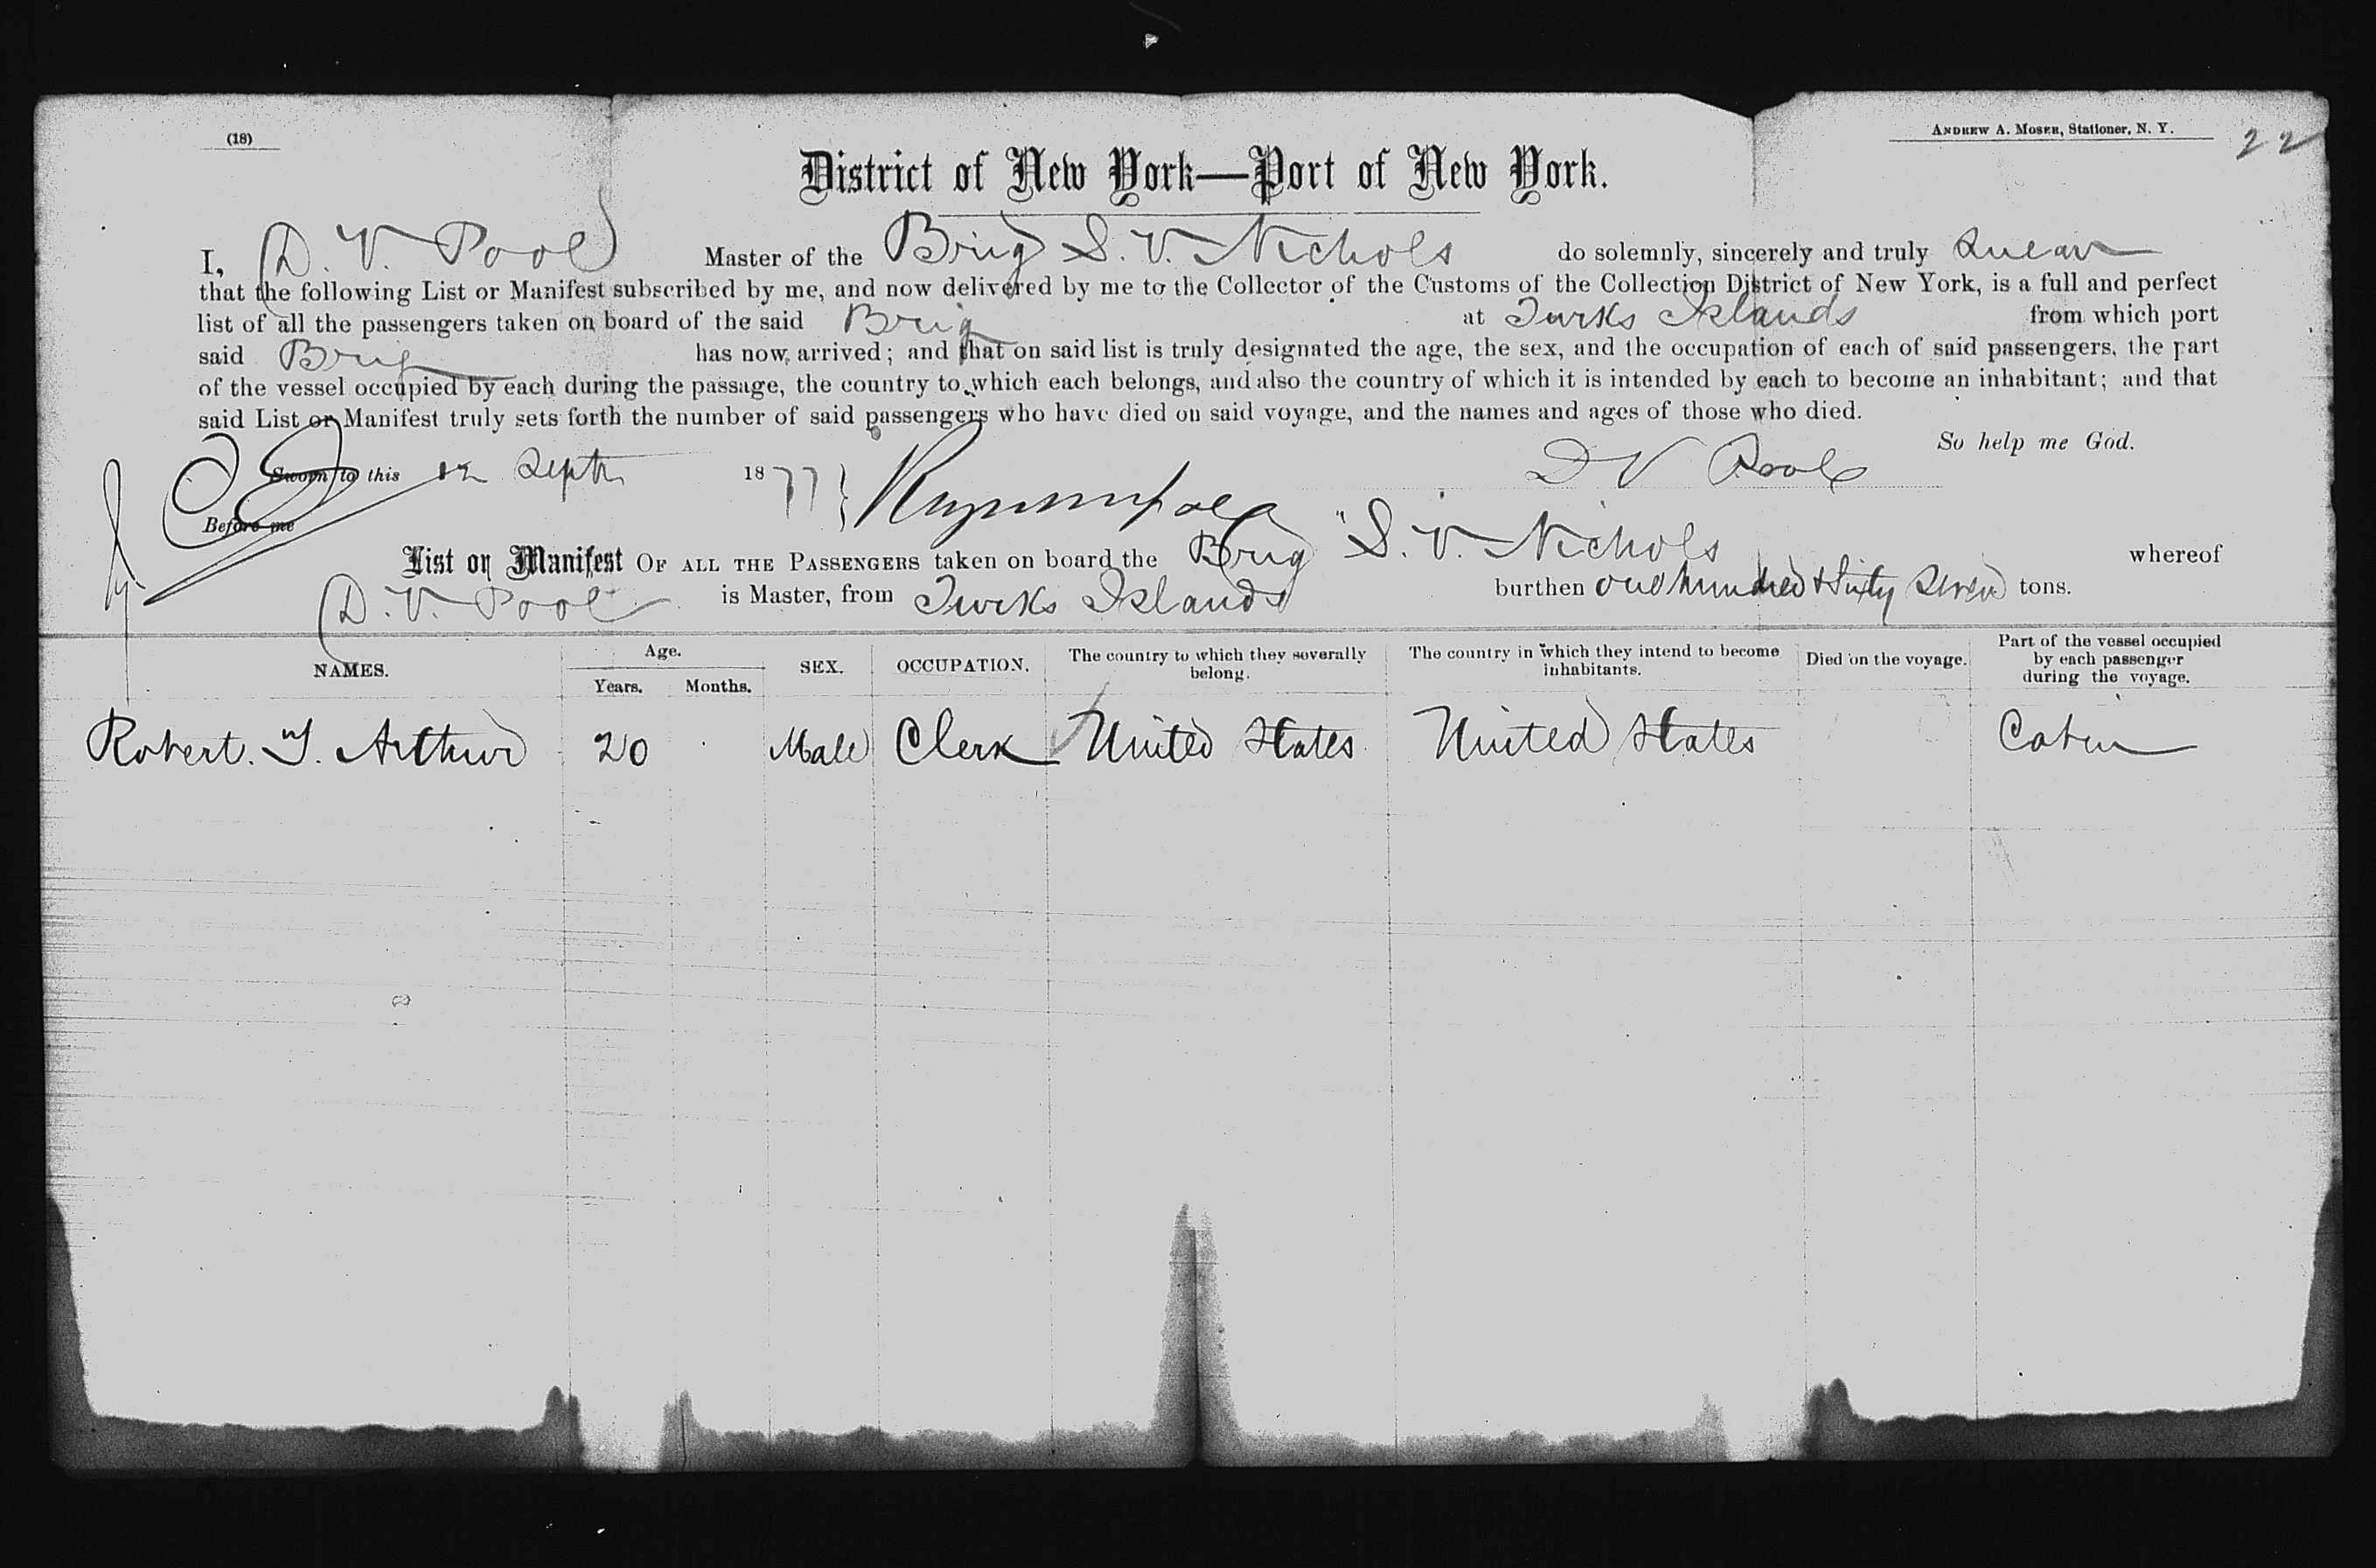 (18)
Andrew A. Moser, Stationer, N. Y.
22
District of New York—Port of New York.
I, D. V. Pool Master of the Brig S. V. Nichols do solemnly, sincerely and truly Swear
that the following List or Manifest subscribed by me, and now delivered by me to the Collector of the Customs of the Collection District of New York, is a full and perfect
list of all the passengers taken on board of the said Brig at Turks Islands from which port
said Brig has now arrived; and that on said list is truly designated the age, the sex, and the occupation of each of said passengers, the part
of the vessel occupied by each during the passage, the country to which each belongs, and also the country of which it is intended by each to become an inhabitant; and that
said List or Manifest truly sets forth the number of said passengers who have died on said voyage, and the names and ages of those who died.
So help me God.
Sworn to this 12 Sept 1877 } D V Pool
Before me
List or Manifest OF ALL THE PASSENGERS taken on board the Brig "S. V. Nichols whereof
D. V. Pool is Master, from Turks Islands burthen one hundred & Sixty Seven tons.
NAMES. Age. Years. Months. SEX. OCCUPATION. The country to which they severally belong. The country in which they intend to become inhabitants. Died on the voyage. Part of the vessel occupied by each passenger during the voyage.
Robert. Arthur 20 Male Clerk United States United States Cabin